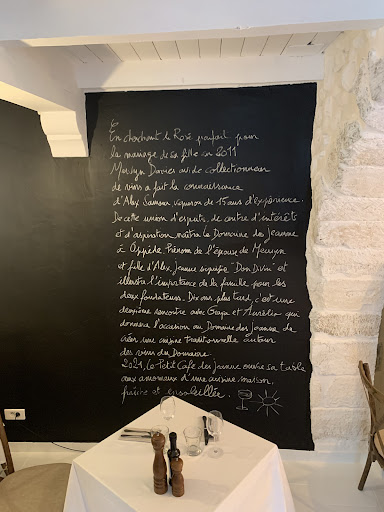 En cherchant le Rosé parfait pour
le mariage de sa fille en 2011
Merwyn Davies avide collectionneur
de vins a fait la connaissance
d'Alex Samson vigneron de 15 ans d'expérience.
De cette union d'esprits, de centre d'intérêts
et d'aspiration naîtra le Domaine des Jeanne
à Oppède. Prénom de l'épouse de Merwyn
et fille d'Alex, Jeanne signifie "Don Divin" et
illustra l'importance de la famille pour les
deux fondateurs. Dix ans plus tard, c'est une
deuxième rencontre avec et Aurélien qui
donnera l'occasion au Domaine des Jeanne de
créer une cuisine traditionnelle autour
des vins du Domaine.
2021, Le Petit Café des Jeanne ouvre sa table
aux amoureux d'une cuisine maison,
fraîche et ensoleillée.